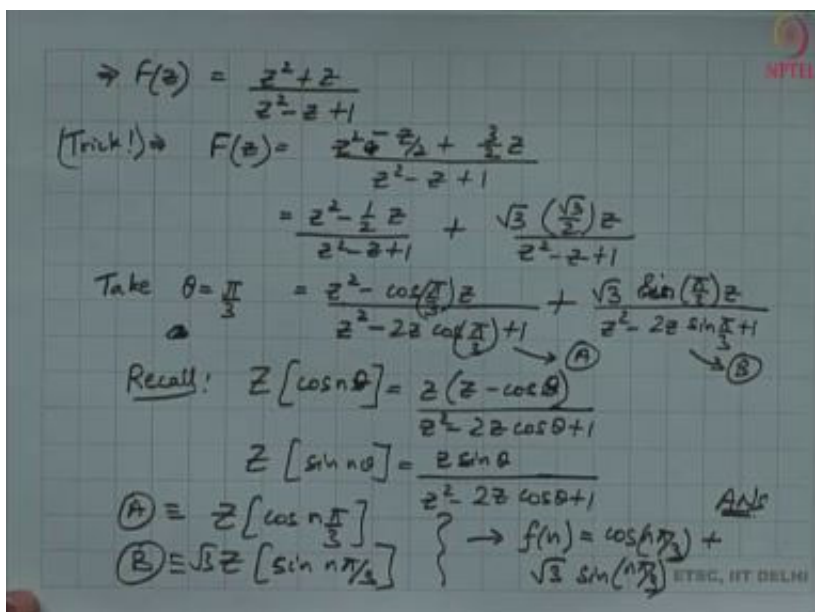 NPTEL
⇒ F(z) = (z² + z)/(z² - z + 1)
(Trick!) ⇒ F(z) = (z² - z/2 + 3/2 z)/(z² - z + 1)
= (z² - 1/2 z)/(z² - z + 1) + (√3 (√3/2) z)/(z² - z + 1)
Take θ = π/3 = (z² - cos(π/3) z)/(z² - 2z cos(π/3) + 1) + (√3 Sin(π/3) z)/(z² - 2z sin π/3 + 1)
→ A → B
Recall: Z[cos nθ] = z(z - cos θ)/(z² - 2z cos θ + 1)
Z[sin nθ] = z sin θ/(z² - 2z cos θ + 1)
ANS
A ≡ Z[cos n π/3] } → f(n) = cos(nπ/3) +
B ≡ √3 Z[sin nπ/3] √3 sin(nπ/3)
ETSC, IIT DELHI